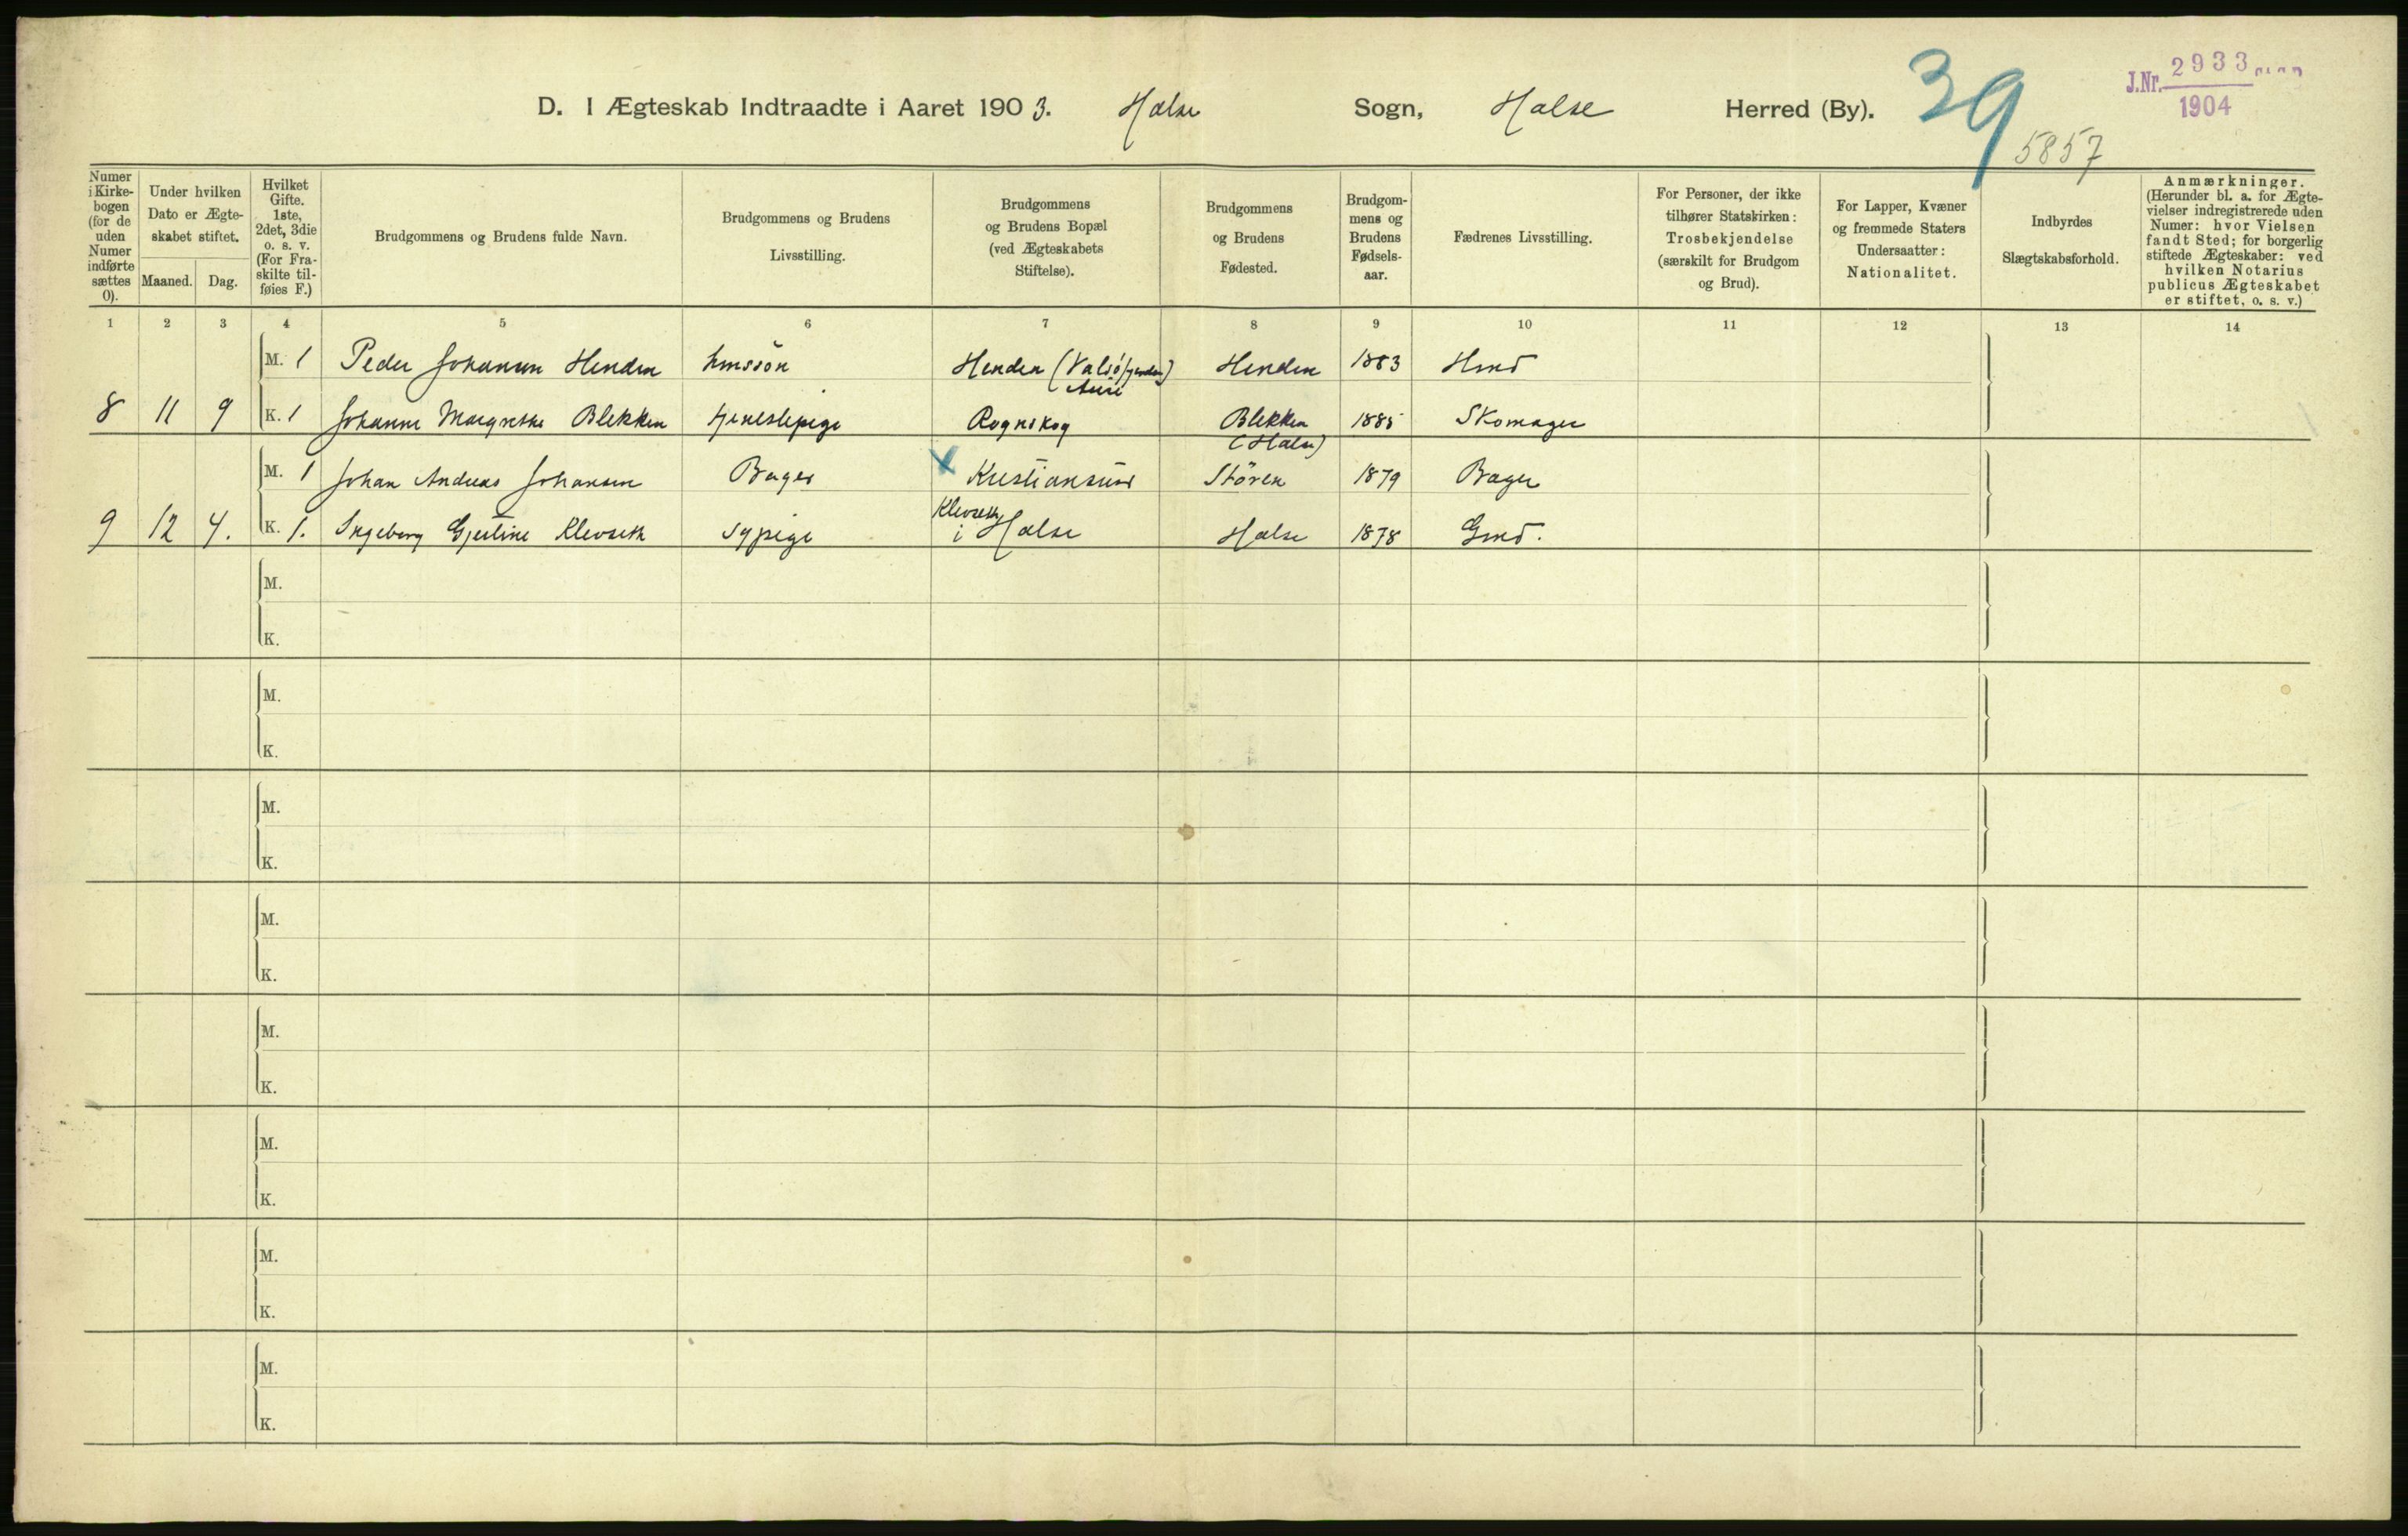 D. I Ægteskab Indtraadte i Aaret 1903. Halse Sogn, Halse Herred (By).
39
J.Nr. 2933
1904
5857
Numer i Kirkebogen (for de uden Numer indførte sættes 0).
Under hvilken Dato er Ægteskabet stiftet.
Maaned. Dag.
Hvilket Gifte. 1ste, 2det, 3die o. s. v. (For Fraskilte tilføies F.)
Brudgommens og Brudens fulde Navn.
Brudgommens og Brudens Livsstilling.
Brudgommens og Brudens Bopæl (ved Ægteskabets Stiftelse).
Brudgommens og Brudens Fødested.
Brudgommens og Brudens Fødselsaar.
Fædrenes Livsstilling.
For Personer, der ikke tilhører Statskirken: Trosbekjendelse (særskilt for Brudgom og Brud).
For Lapper, Kvæner og fremmede Staters Undersaatter: Nationalitet.
Indbyrdes Slægtskabsforhold.
Anmærkninger. (Herunder bl. a. for Ægtevielser indregistrerede uden Numer: hvor Vielsen fandt Sted; for borgerlig stiftede Ægteskaber: ved hvilken Notarius publicus Ægteskabet er stiftet, o. s. v.)
1 2 3 4 5 6 7 8 9 10 11 12 13 14
M. 1 Peder Johansen Henden Henden (Valsöfjorden) Aure Henden 1883 Hmd
8 11 9 K. 1 Johanne Margrethe Blekken tjenestepige Rognskog Blekken (Halse) 1885 Skomager
M. 1 Johan Andreas Johansen Bager Kristiansund Stören 1879 Bager
9 12 4. K. 1. Ingeborg Gjertine Klevseth Sypige Klevseth i Halse Halse 1878 Gmd.
M.
K.
M.
K.
M.
K.
M.
K.
M.
K.
M.
K.
M.
K.
M.
K.